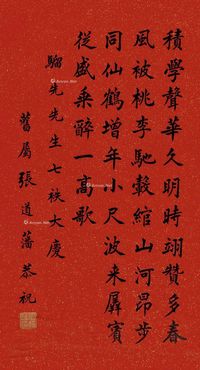 積學聲華久明時翊贊多春
風被桃李馳轂綰山河昂步
同仙鶴增年小尺波来羼賓
從盛乘醉一高歌
騮先先生七袟大慶
舊屬張道藩恭祝